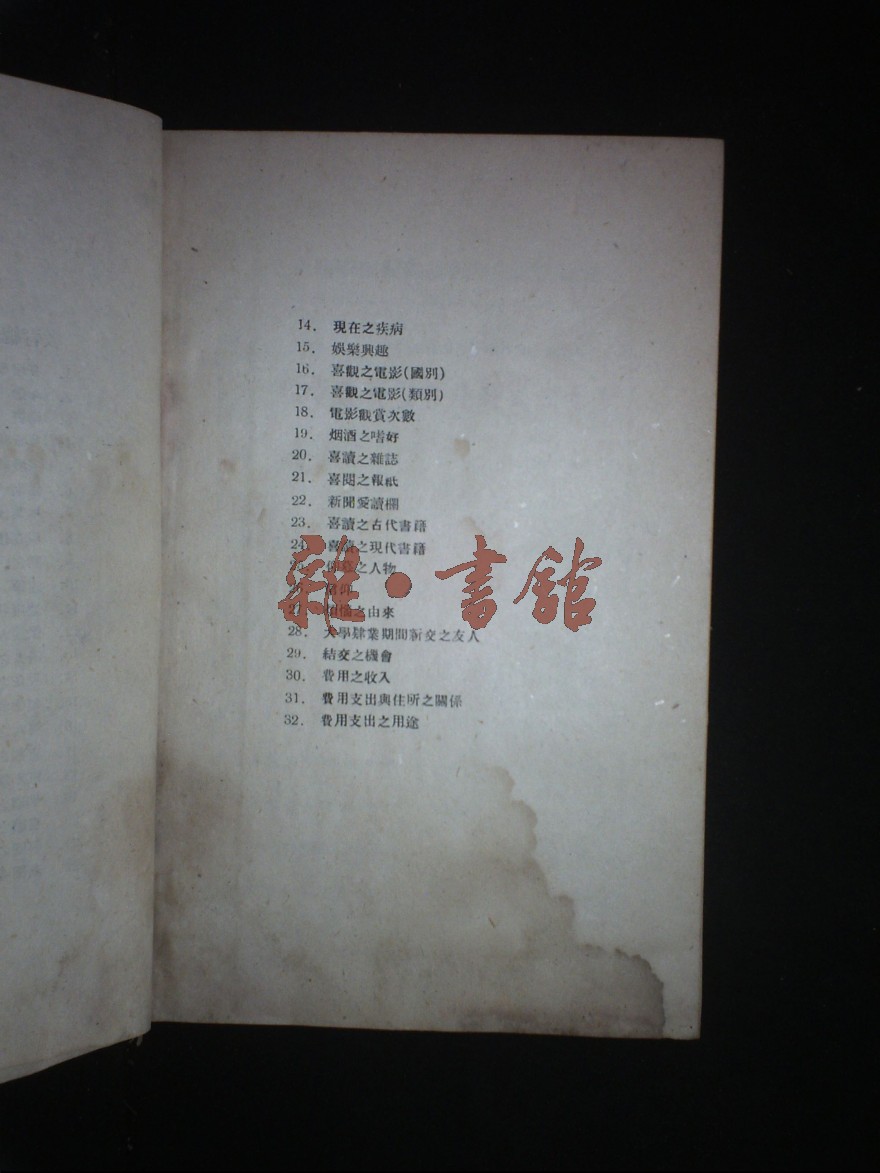 14. 現在之疾病
15. 娛樂興趣
16. 喜觀之電影(國別)
17. 喜觀之電影(類別)
18. 電影觀賞次數
19. 烟酒之嗜好
20. 喜讀之雜誌
21. 喜閱之報紙
22. 新聞愛讀欄
23. 喜讀之古代書籍
24. 喜讀之現代書籍
25. 之人物
26. 信仰
27. 之由來
28. 大學肄業期間新交之友人
29. 結交之機會
30. 費用之收入
31. 費用支出與住所之關係
32. 費用支出之用途
雜·書館